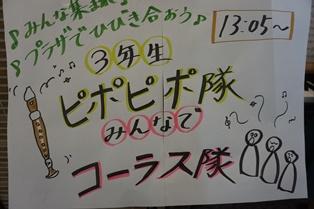 ♪みんな集まれ♪
♪プラザでひびき合おう♪
13:05〜
3年生
ピポピポ隊
みんなで
コーラス隊